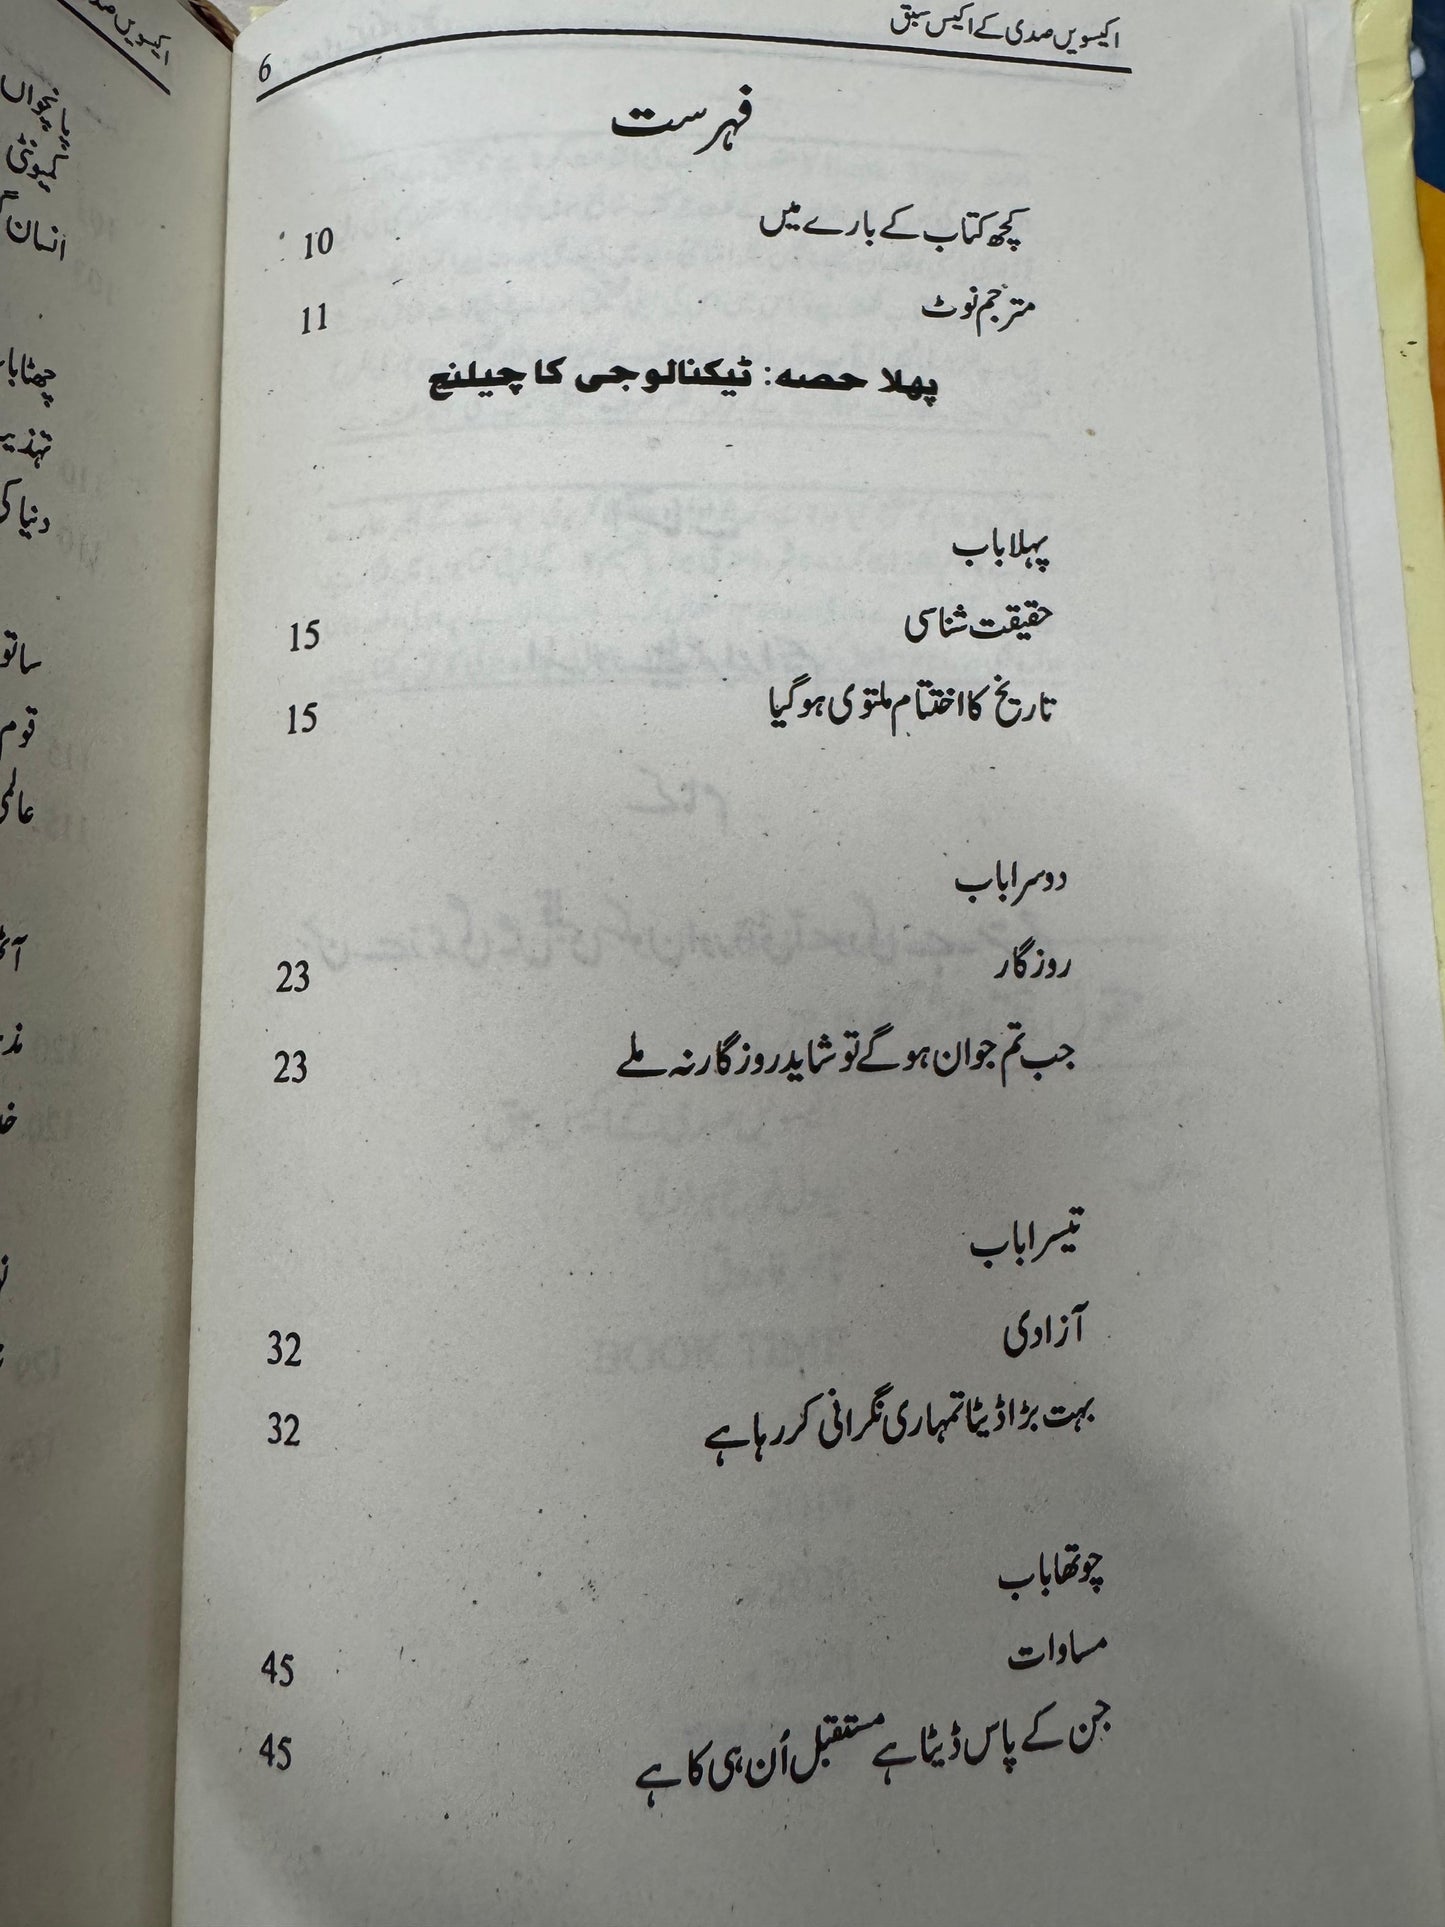 اکیسویں صدی کے اکیس سبق
6
فہرست
کچھ کتاب کے بارے میں 10
مترجم نوٹ 11
پہلا حصہ: ٹیکنالوجی کا چیلنج
پہلا باب
حقیقت شناسی 15
تاریخ کا اختتام ملتوی ہو گیا 15
دوسرا باب
روزگار 23
جب تم جوان ہو گے تو شاید روزگار نہ ملے 23
تیسرا باب
آزادی 32
بہت بڑا ڈیٹا تمہاری نگرانی کر رہا ہے 32
چوتھا باب
مساوات 45
جن کے پاس ڈیٹا ہے مستقبل اُن ہی کا ہے 45